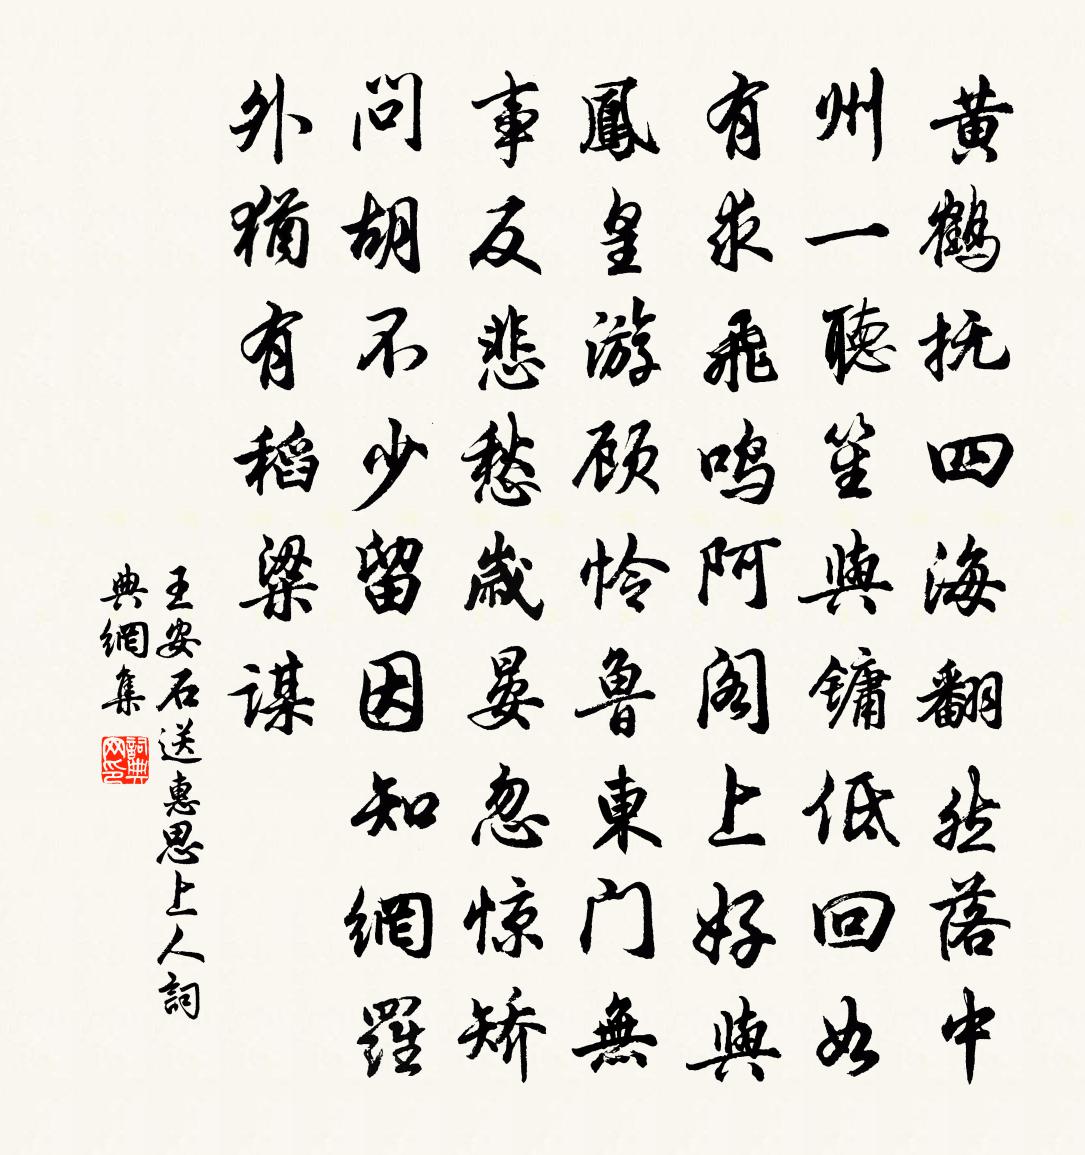 黄鶴抚四海翻然落中
州一聽笙與镛低回如
有求飛鸣阿阁上好與
鳳皇游顾怜魯東门無
事反悲愁歲晏忽惊矫
问胡不少留因知網羅
外猶有稻梁谋
王安石送惠思上人詞
典網集
詞典网印